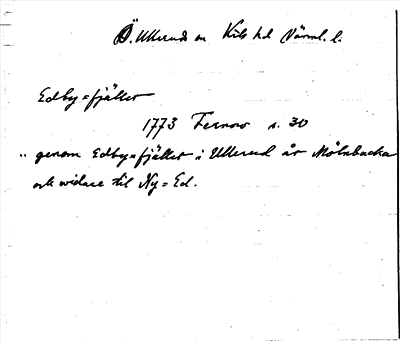 Ö. Ullerud sn Kils hd Värml. l.
Edby=fjället
1773 Fernow s. 30
„ genom Edby=fjället i Ullerud åt Mölnbacka
och widare til Ny=Ed.